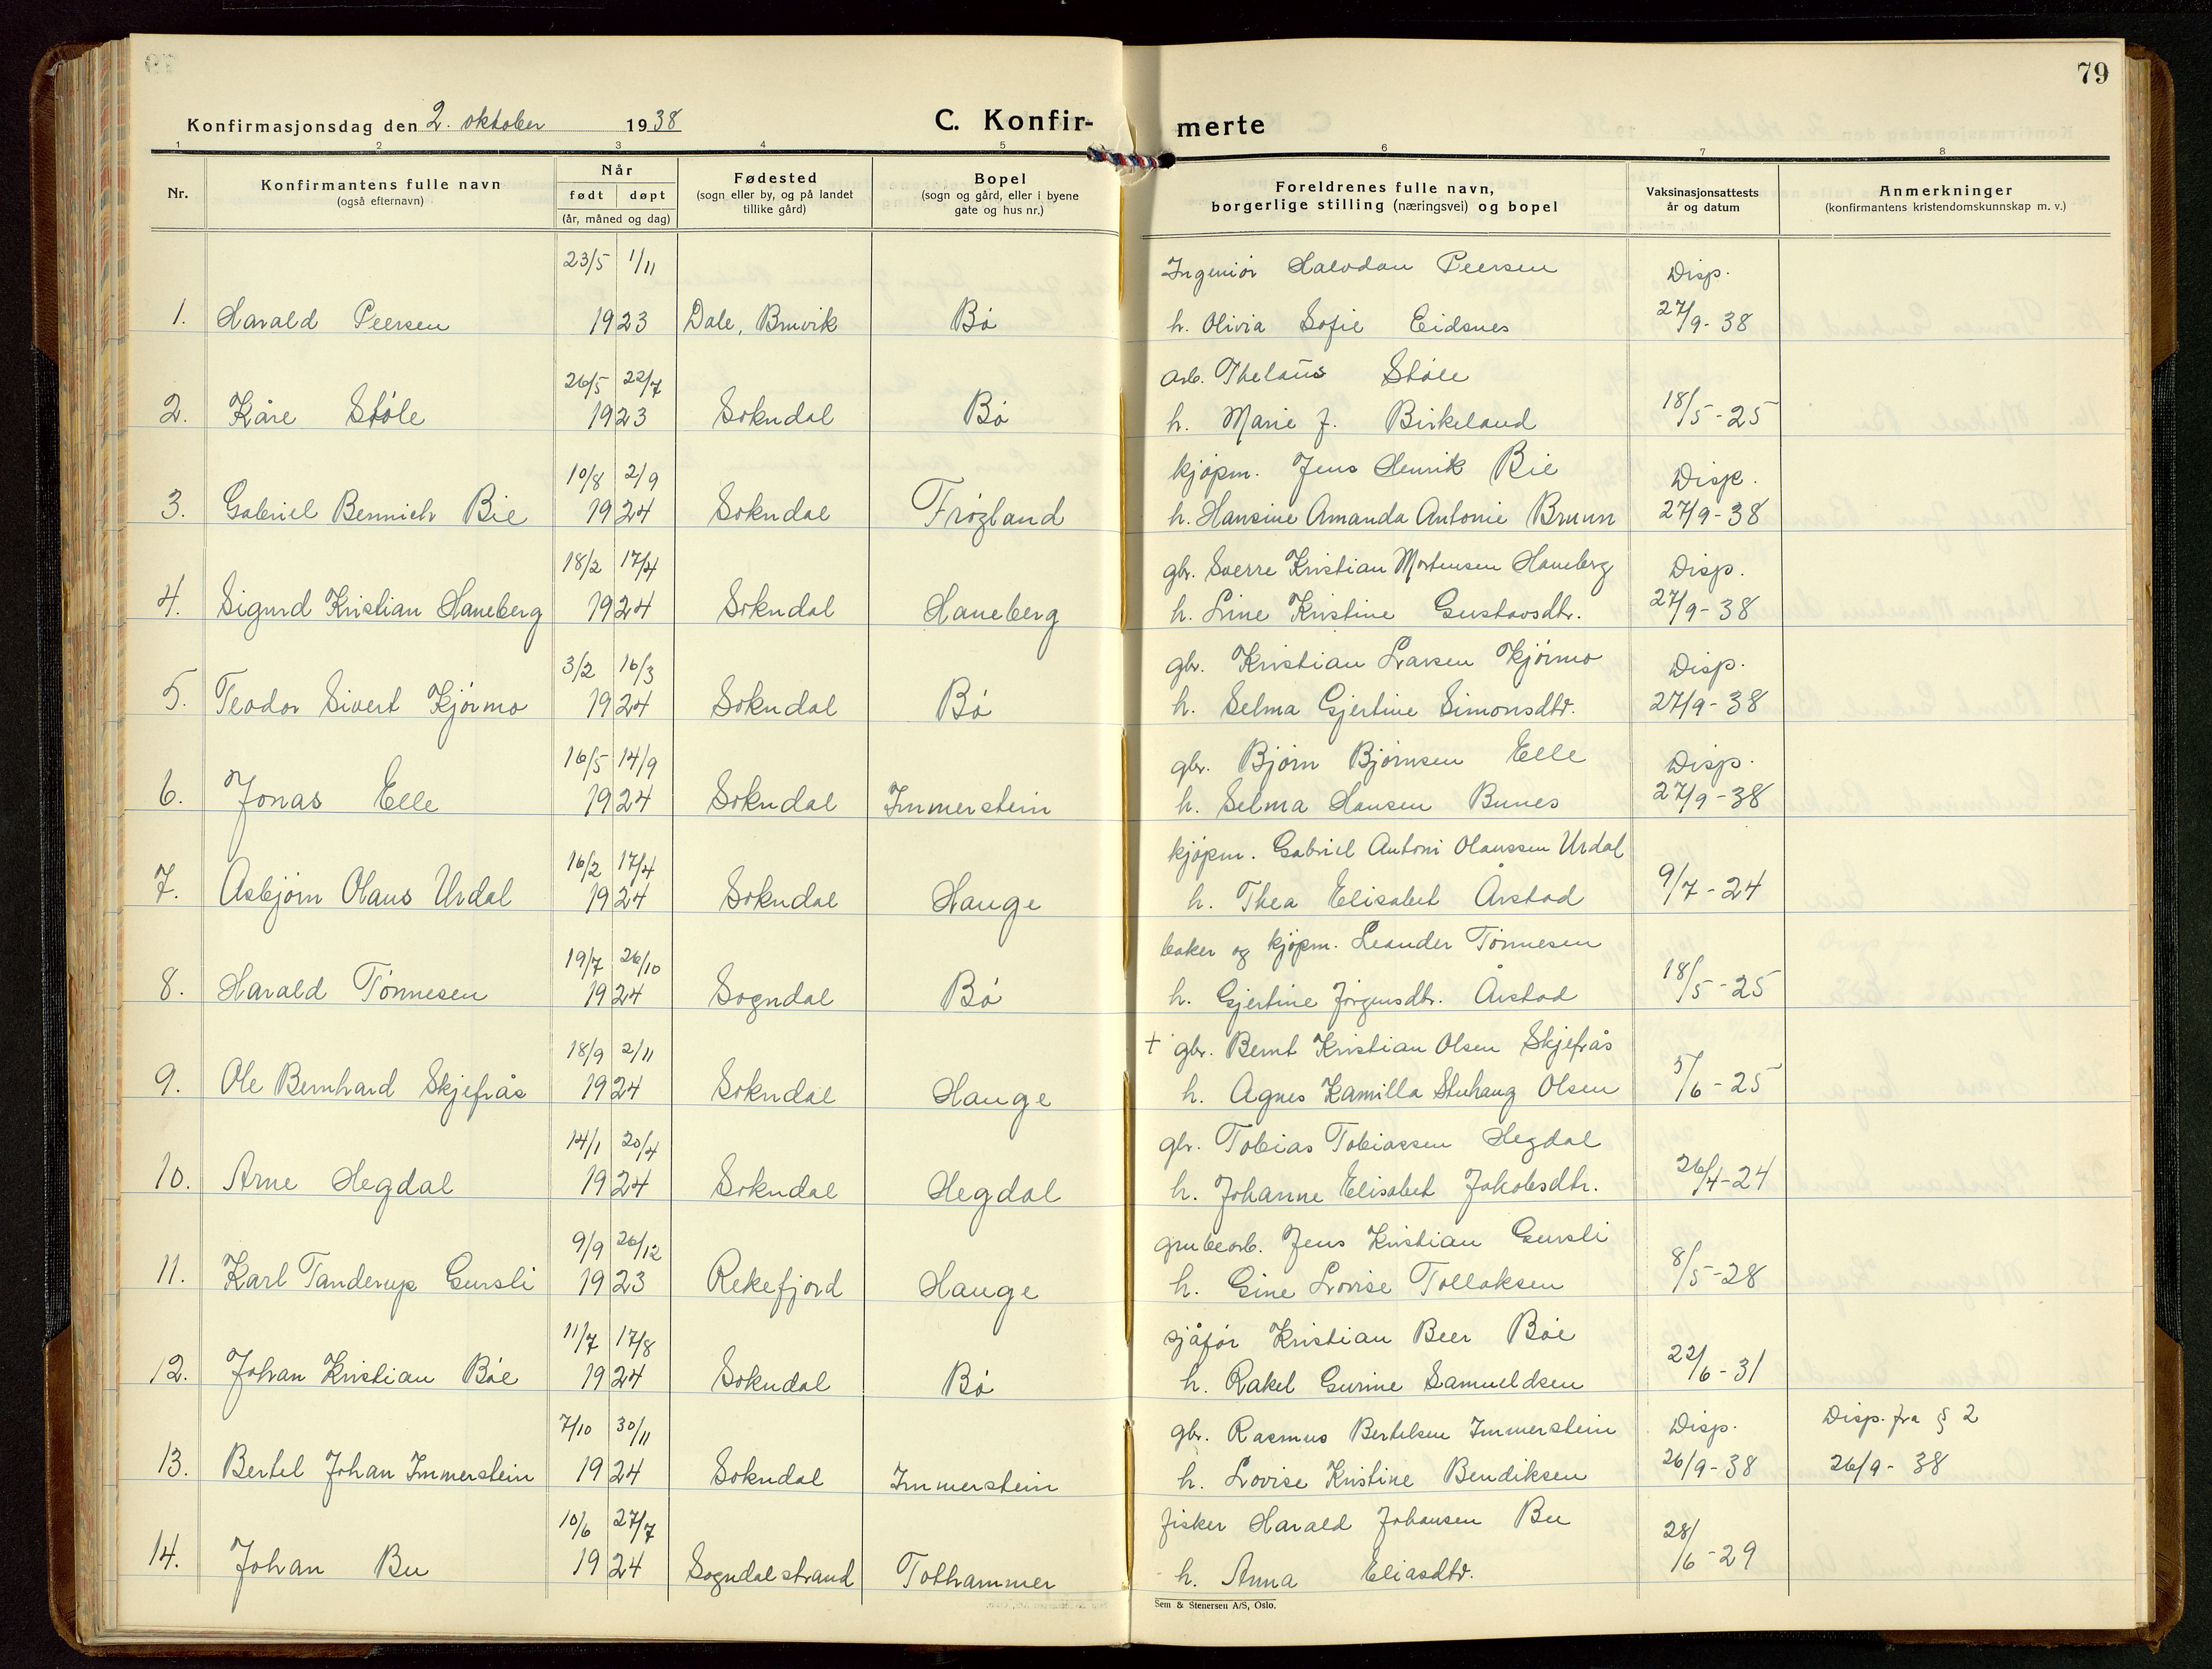 79
Konfirmasjonsdag den 2. oktober 1938
C. Konfir- merte
1 2 3 4 5 6 7 8
Nr.
Konfirmantens fulle navn
(også efternavn)
Når
født døpt
(år, måned og dag)
Fødested
(sogn eller by, og på landet
tillike gård)
Bopel
(sogn og gård, eller i byene
gate og hus nr.)
Foreldrenes fulle navn,
borgerlige stilling (næringsvei) og bopel
Vaksinasjonsattests
år og datum
Anmerkninger
(konfirmantens kristendomskunnskap m. v.)
23/5 1/11 Ingeniør Halvdan Peersen Disp.
1. Harald Peersen 1923 Dale, Bruvik Bø h. Olivia Sofie Eidsnes 27/9-38
26/5 22/7 arb. Støle
2. Kåre Støle 1923 Sokndal Bø h. Marie J. Birkeland 18/5-25
10/8 2/9 kjøpm. Jens Henrik Bie Disp.
3. Gabriel Bennich Bie 1924 Sokndal Frøgland h. Hansine Amanda Antonie Brunn 27/9-38
18/2 17/4 gbr. Sverre Kristian Mortensen Haneberg Disp.
4. Sigurd Kristian Haneberg 1924 Sokndal Haneberg h. Line Kristine Gustavsdtr. 27/9-38
3/2 16/3 gbr. Kristian Larsen Kjørmo Disp.
5. Teodor Sivert Kjørmo 1924 Sokndal Bø h. Selma Gjertine Simonsdtr. 27/9-38
16/5 14/9 gbr. Bjørn Bjørnsen Elle Disp.
6. Jonas Elle 1924 Sokndal Immerstein h. Selma Hansen Bunes 27/9-38
16/2 17/4 kjøpm. Gabriel Antoni Olaussen Urdal
7. Asbjørn Olaus Urdal 1924 Sokndal Hauge h. Thea Elisabet Årstad 9/7-24
19/7 26/10 baker og kjøpm. Leander Tønnesen
8. Harald Tønnesen 1924 Sogndal Bø h. Gjertine Jørgensdtr. Årstad 18/5-25
18/9 2/11 + gbr. Bernt Kristian Olsen Skjefrås
9. Ole Bernhard Skjefrås 1924 Sokndal Hauge h. Agnes Kamilla Stuhaug Olsen 5/6-25
14/1 20/4 gbr. Tobias Tobiassen Hegdal
10. Arne Hegdal 1924 Sokndal Hegdal h. Johanne Elisabet Jakobsdtr. 26/4-24
9/9 26/12 grubearb. Jens Kristian Gursli
11. Karl Tanderup Gursli 1923 Rekefjord Hauge h. Gine Lovise Tollaksen 8/5-28
11/7 17/8 sjåfør Kristian Beer Bøe
12. Johan Kristian Bøe 1924 Sokndal Bø h. Rakel Gurine Samueldsen 22/6-31
7/10 30/11 gbr. Rasmus Bertelsen Immerstein Disp. Disp. fra § 2
13. Bertel Johan Immerstein 1924 Sokndal Immerstein h. Lovise Kristine Bendiksen 26/9-38 26/9-38
10/6 27/7 fisker Harald Johansen Bu
14. Johan Bu 1924 Sogndalstrand Tothammer h. Anna Eliasdtr. 28/6-29
Sem & Stenersen A/S, Oslo.